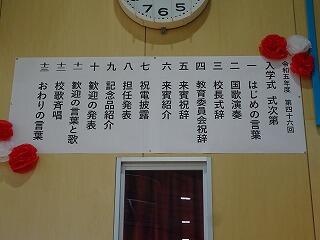 令和五年度 第四十六回
入学式 式次第
一 はじめの言葉
二 国歌演奏
三 校長式辞
四 教育委員会祝辞
五 来賓祝辞
六 来賓紹介
七 祝電披露
八 担任発表
九 記念品紹介
十 歓迎の発表
十一 歓迎の言葉と歌
十二 校歌斉唱
十三 おわりの言葉